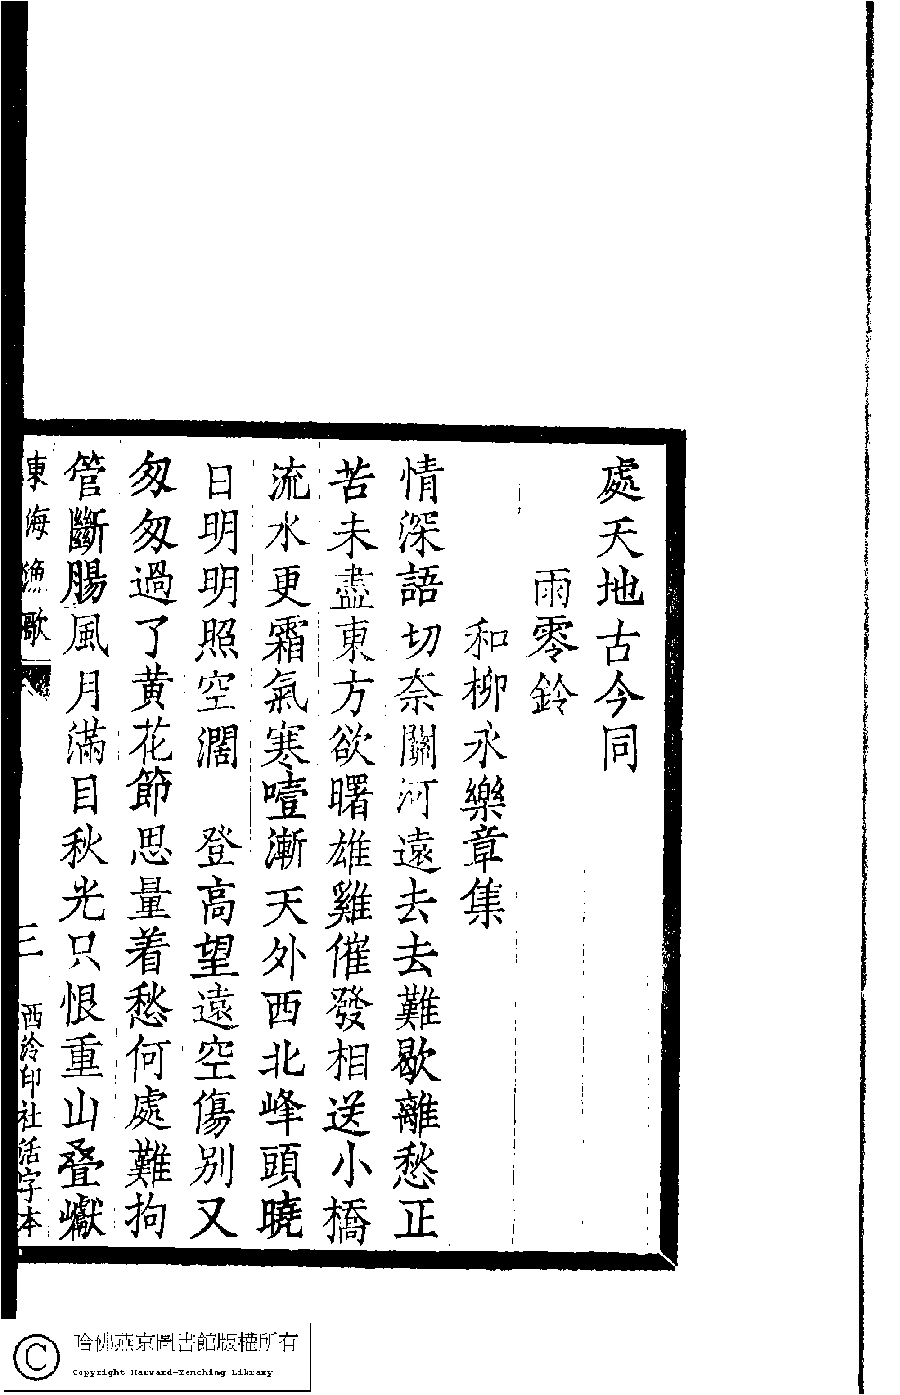 處天地古今同
雨零鈴
和柳永樂章集
情深語切奈關河遠去去難歇離愁正
苦未盡東方欲曙雄雞催發相送小橋
流水更霜氣寒噎漸天外西北峰頭曉
日明明照空濶　登高望遠空傷別又
匆匆過了黄花節思量着愁何處難拘
管斷腸風月滿目秋光只恨重山叠巘
東海漁歌
三
西泠印社活字本
哈佛燕京圖書館版權所有
Copyright Harvard-Yenching Library